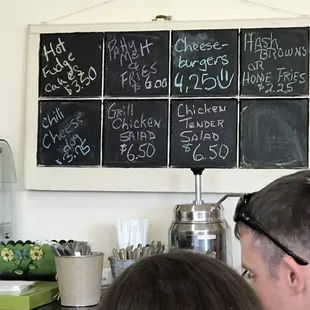 Hot
Fudge
Cakes
$3.50
Patty Melt
&
FRIES
$6.00
Cheese-
burgers
4.25
Hash Browns
OR
Home Fries
$2.25
Chili
Cheese
dog
$3.75
Grill
Chicken
Salad
$6.50
Chicken
Tender
Salad
$6.50